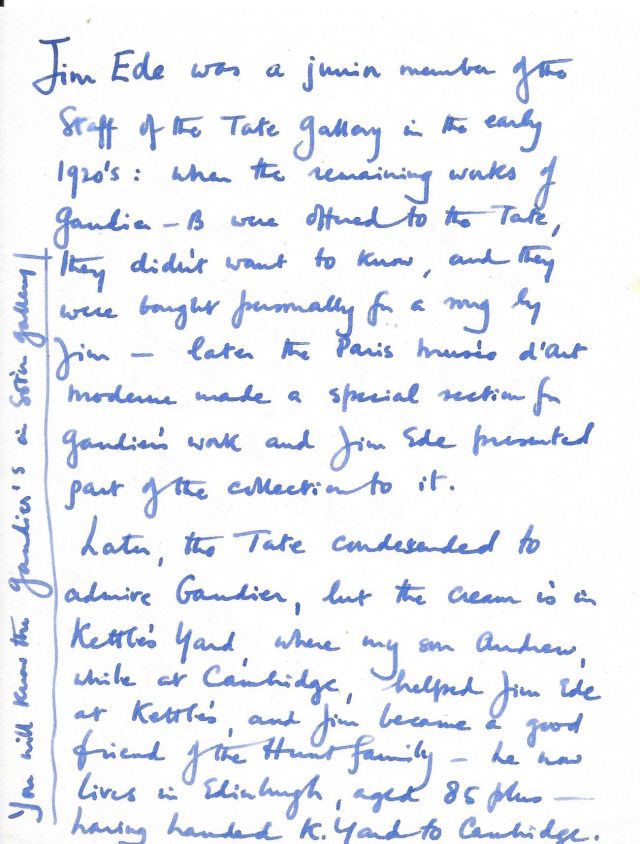 Jim Ede was a junior member of the
Staff of the Tate Gallery in the early
1920's : when the remaining works of
Gaudier - B were offered to the Tate,
they didn't want to know, and they
were bought personally for a song by
Jim - later the Paris musée d'Art
moderne made a special section for
Gaudier's work and Jim Ede presented
part of the collection to it.
Later, the Tate condesended to
admire Gaudier, but the cream is in
Kettle's Yard, where my son Andrew,
while at Cambridge, helped Jim Ede
at Kettle's, and Jim became a good
friend of the Hunt family - he now
lives in Edinburgh, aged 85 plus -
having handed K. Yard to Cambridge.
You will know the Gaudier's in gallery